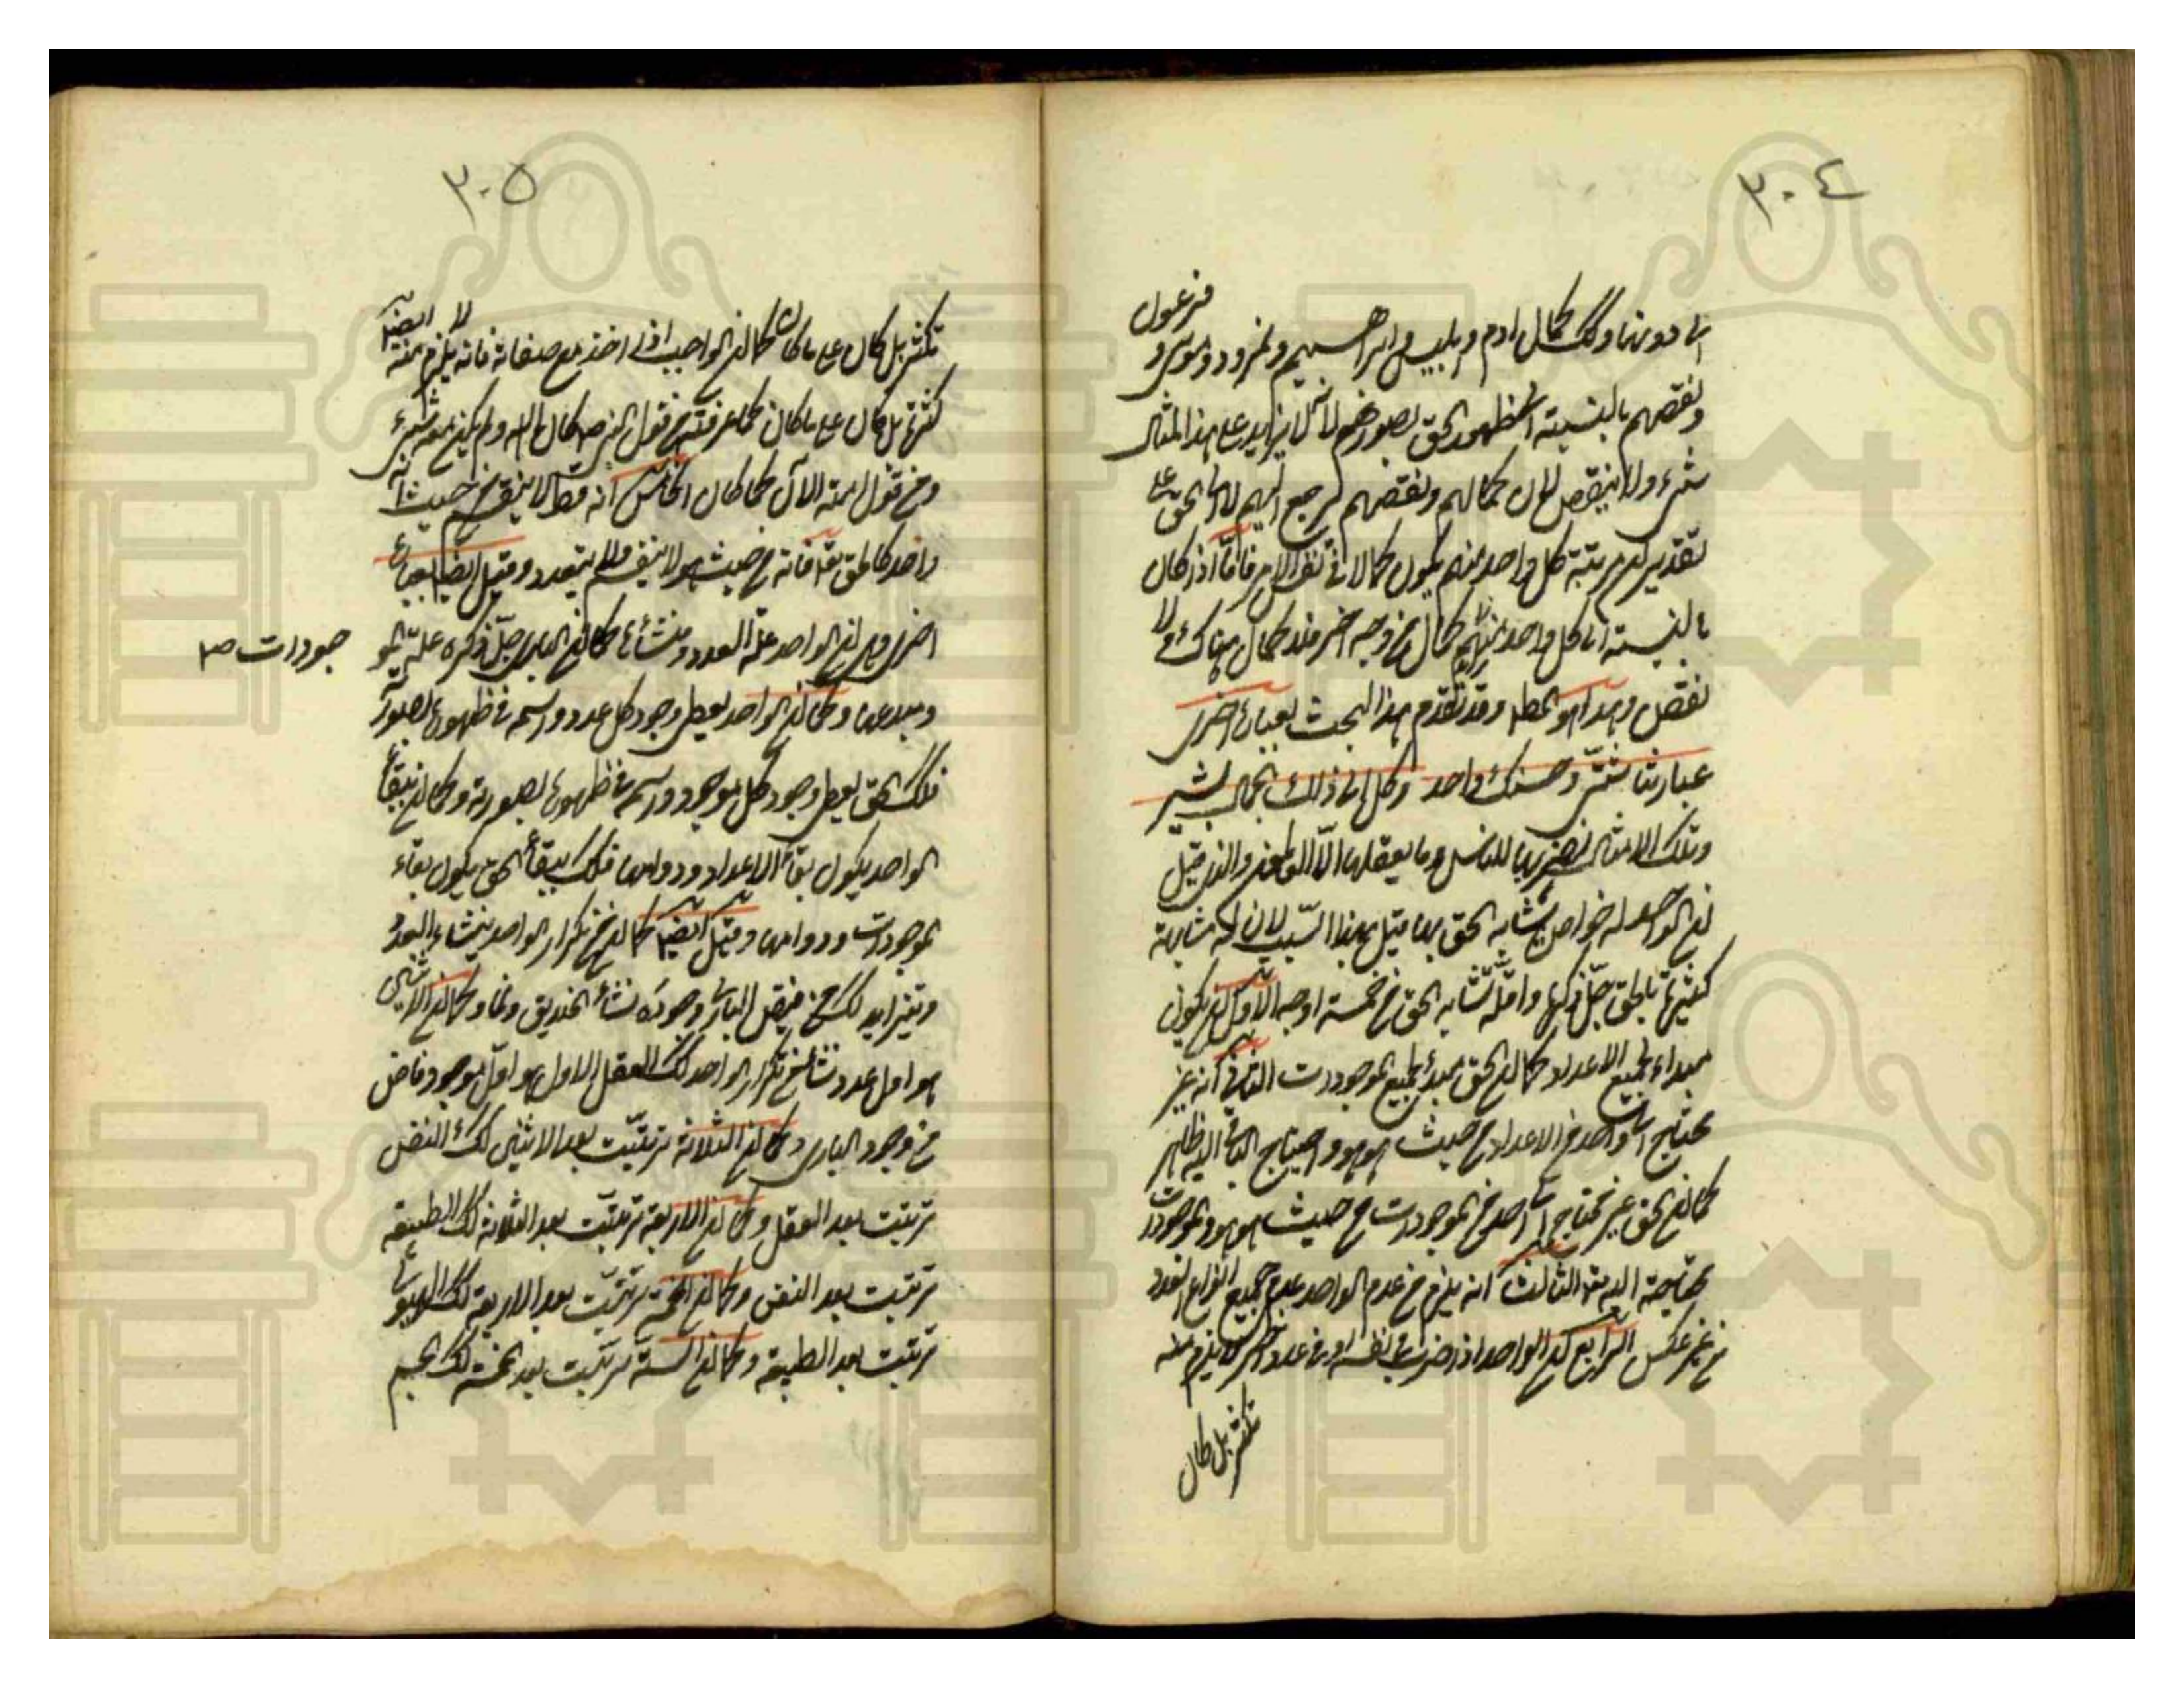 ٣٠٤
الى دونها وكك كمال ادم و ابليس و ابراهيم و نمرود و موسى و فرعون
ونقصهم بالنسبة الى ظهور الحق بصورهم لانه لا يزايد على هذا المثال
شىء ولا ينقص لان كمالهم ونقصهم يرجع اليهم لا الى الحق على
تقدير مرتبة كل واحد منهم يكون كمالا فى نفس الامر فاما اذا كان
بالنسبة الى كل واحد منهم كمال من وجه اخر فذ كمال هناك ولا
نقص وهذا هو المط وقد تقدم هذا البحث بعبارة اخرى
عباراتنا شتى وحسنك واحد وكل الى ذلك الجمال يشير
وتلك الامثال نضربها للناس وما يعقلها الا العالمون والذى قيل
ان الواحد له خواص يشابه الحق بها قيل بهذا السبب لان له مشابهة
كثيرة بالحق جل ذكره وانه يشابه الحق من خمسة اوجه الاول ان يكون
مبداء لجميع الاعداد كما ان الحق مبدأ لجميع الموجودات الثانى انه غير
محتاج الى واحد من الاعداد من حيث هو هو واحتياج الباقى اليه ظاهر
كما ان الحق غير محتاج الى احد من الموجودات من حيث هو هو والموجودات
محتاجة اليه الثالث انه يلزم من عدم الواحد عدم جميع انواع العدد
من غير عكس الرابع ان الواحد اذا ضرب فى نفسه او فى عدد اخر لا يلزم منه
تكثر بل كان
٣٠٥
تكثر بل كان على ما كان كما ان الواجب اذا اخذ مع صفاته فانه لا يلزم منه ايضا
كثرة بل كان على ما كان كما عرفته من قول النبى ص كان الله ولم يكن معه شىء
ومن قول امته الان كما كان الخامس انه قط لا ينقسم من حيث انه
واحد كالحق تعا فانه من حيث هو لا ينقسم ولا يتعدد وقيل ايضا بعبارة
اخرى وهى ان الواحد علة العدد ومنشأها كما ان البارى جل ذكره علة المو
جودات ص
ومبدعها وكما ان الواحد يعطى وجود كل عدد واسمه فى ظهوره بصورته
فكك الحق يعطى وجود كل موجود واسمه فى ظهوره بصورته وكما ان ببقاء
الواحد يكون بقاء الاعداد ودوامها فكك ببقاء الحق يكون بقاء
الموجودات ودوامها وقيل ايضا كما ان من تكرار الواحد ينشاء العدد
ويتزايد كك من فيض البارى وجوده نشأ الخلايق ونما وكما ان الاثنين
هو اول عدد نشا من تكرار الواحد كك العقل الاول هو اول موجود فاض
من وجود البارى وكما ان الثلاثة ترتبت بعد الاثنين كك النفس
ترتبت بعد العقل وكما ان الاربعة ترتبت بعد الثلاثة كك الطبيعة
ترتبت بعد النفس وكما ان الخمسة ترتبت بعد الاربعة كك الهيولى
ترتبت بعد الطبيعة وكما ان الستة ترتبت بعد الخمسة كك الجسم